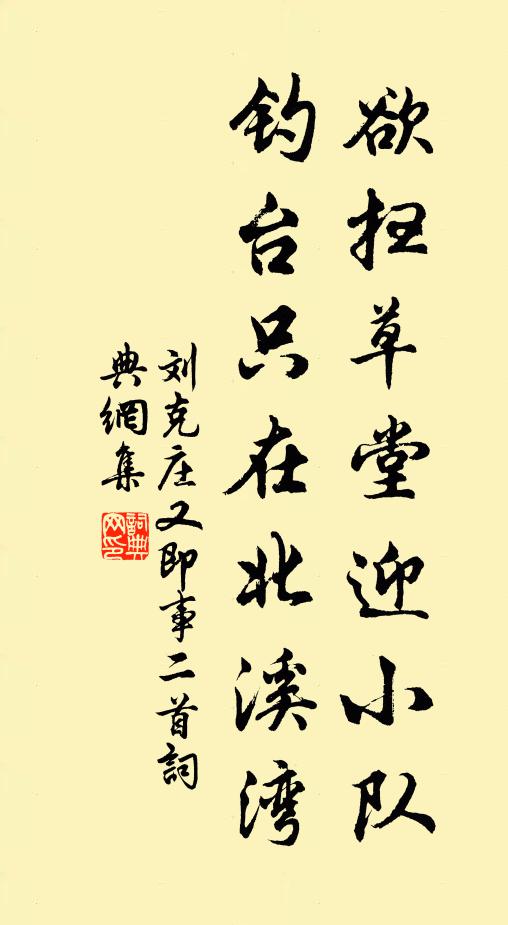 欲扫草堂迎小队
钓台只在北溪湾
刘克庄又即事二首词
典網集
詞典網印